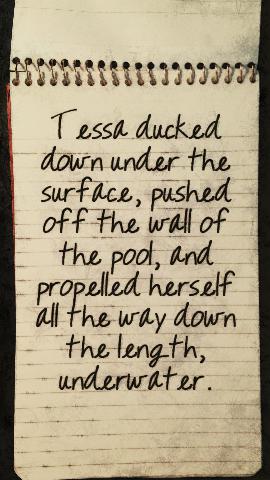 Tessa ducked
down under the
surface, pushed
off the wall of
the pool, and
propelled herself
all the way down
the length,
underwater.